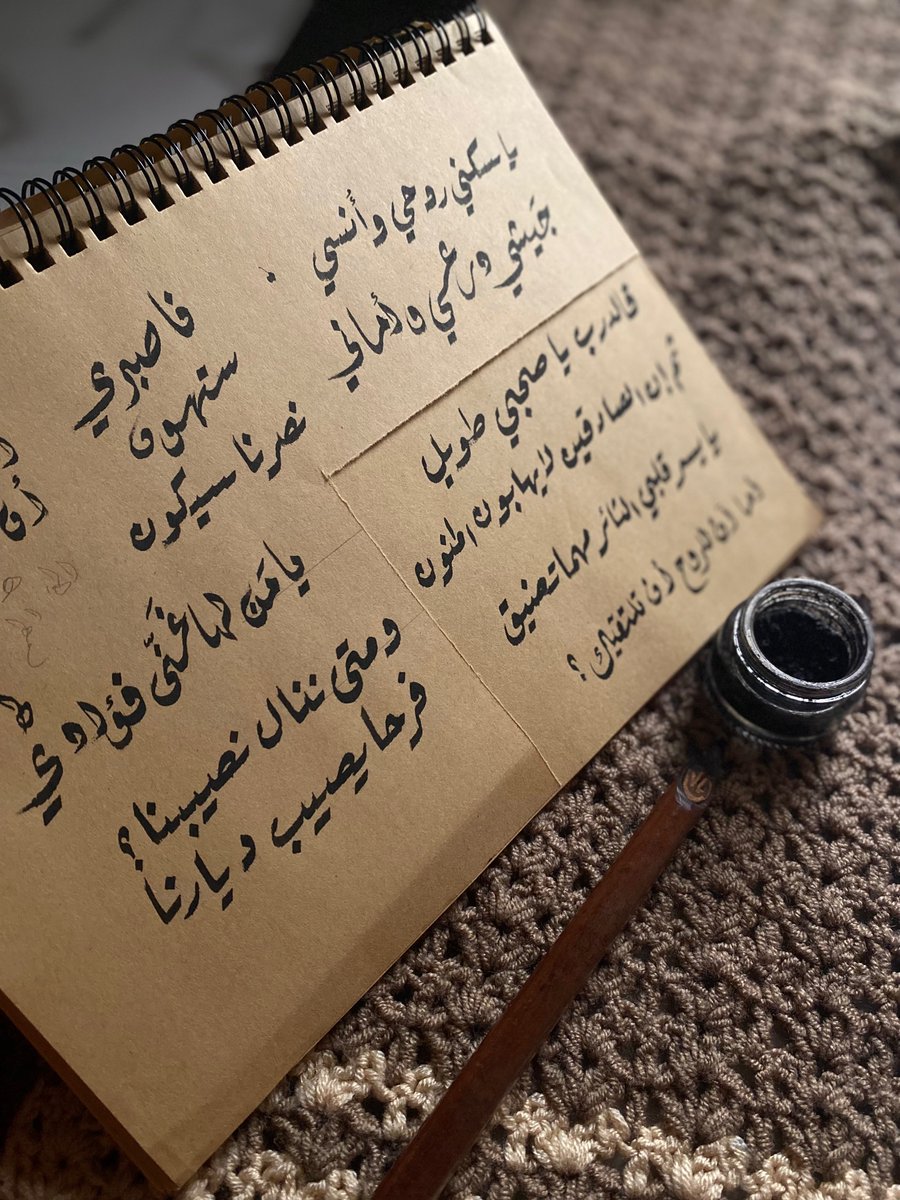 يا سكني روحي وأنسي
جَيشي ودرعي وأماني
فالدرب يا صحبي طويل
ثم إن الصادقين لا يهابون المنون
يا يسر قلبي الثائر مهما تضيق
أما آن للروح أن تلتقيك؟
فاصبري
ستهون
نصرنا سيكون
يا مَن لها غَنَّى فؤادي
ومتى ننال نصيبنا؟
فرحا يصيب ديارنا
أن